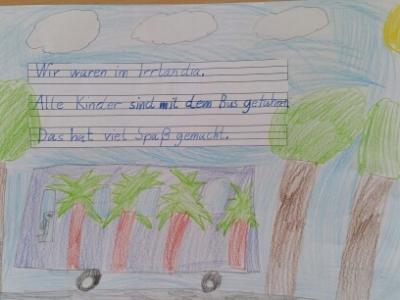 Wir waren im Irrlandia.
Alle Kinder sind mit dem Bus gefahren
Das hat viel Spaß gemacht.